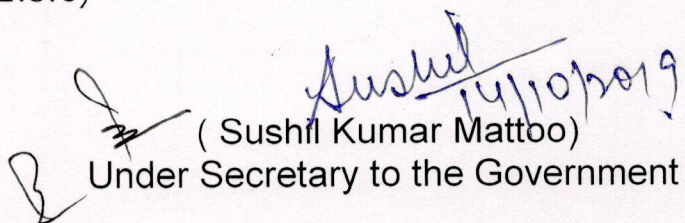 Sushil
14/10/2019
( Sushil Kumar Mattoo)
Under Secretary to the Government